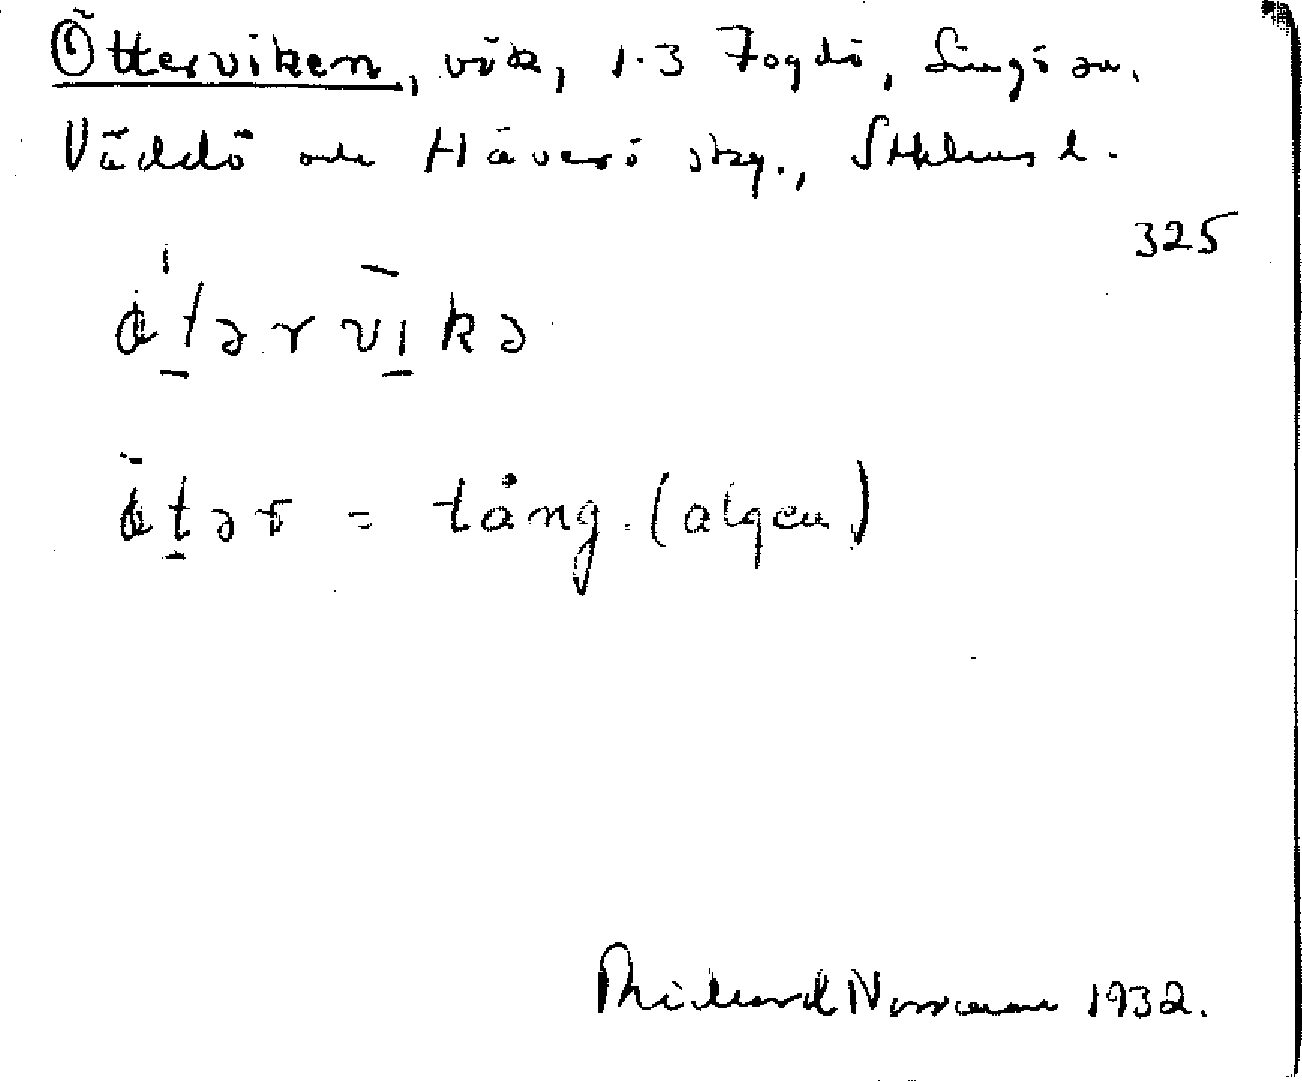 Ötterviken, vik, 1.3 Fogdö, Singö sn,
Väddö och Häverö skg., Sthlms l.
325
ötərvikə
ötər = tång. (algen)
Rickard Norrman 1932.